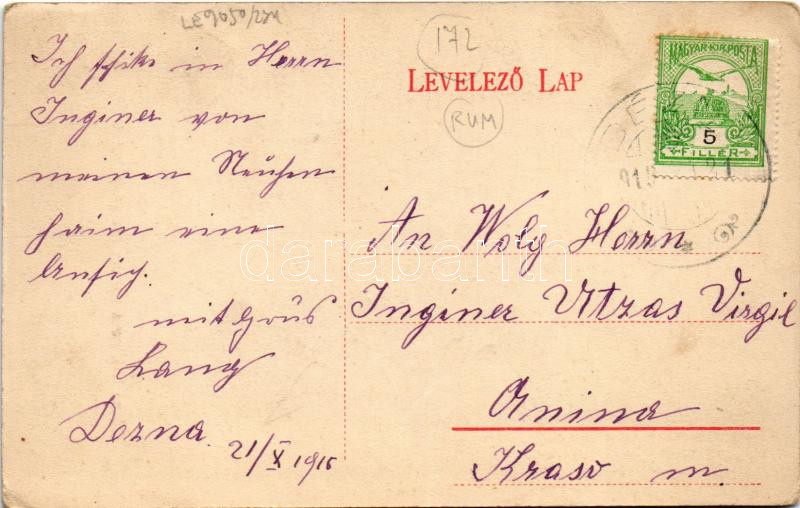 LE9050/271
Ich schike in Herrn
Inginer von
meinen Neuhen
haim eine
Ansich.
mit Grüs
Lang
Dezna
21/X 1915
172
LEVELEZŐ LAP
RUM
MAGYAR·KIR·POSTA
5
FILLÉR
An Wolg Herrn
Inginer Utzas Virgil
Anina
Kraso m.
darabanth